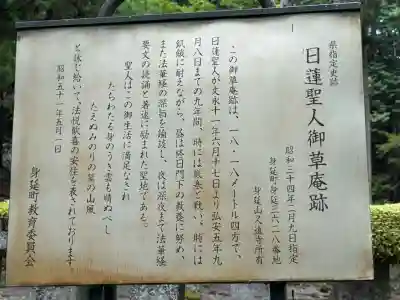 県指定史跡
日蓮聖人御草庵跡
昭和三十四年二月九日指定
身延町身延三六二八番地
身延山久遠寺所有
この御草庵跡は、一八・一八メートル四方で、
日蓮聖人が文永十一年六月十七日より弘安五年九
月八日までの九年間、時には厳寒と戦い、時には
飢餓に耐えながら、昼は終日門下の教養に努め、
また法華経の深旨を論談し、夜は深夜まで法華経
要文の読誦と著述に励まれた聖地である。
聖人はこの御生活に満足なされ
たちわたる身のうき雲も晴ぬべし
たえぬみのりの鷲の山風
と詠じ給いて、法悦歓喜の安住を表されております。
昭和五十一年五月一日
身延町教育委員会